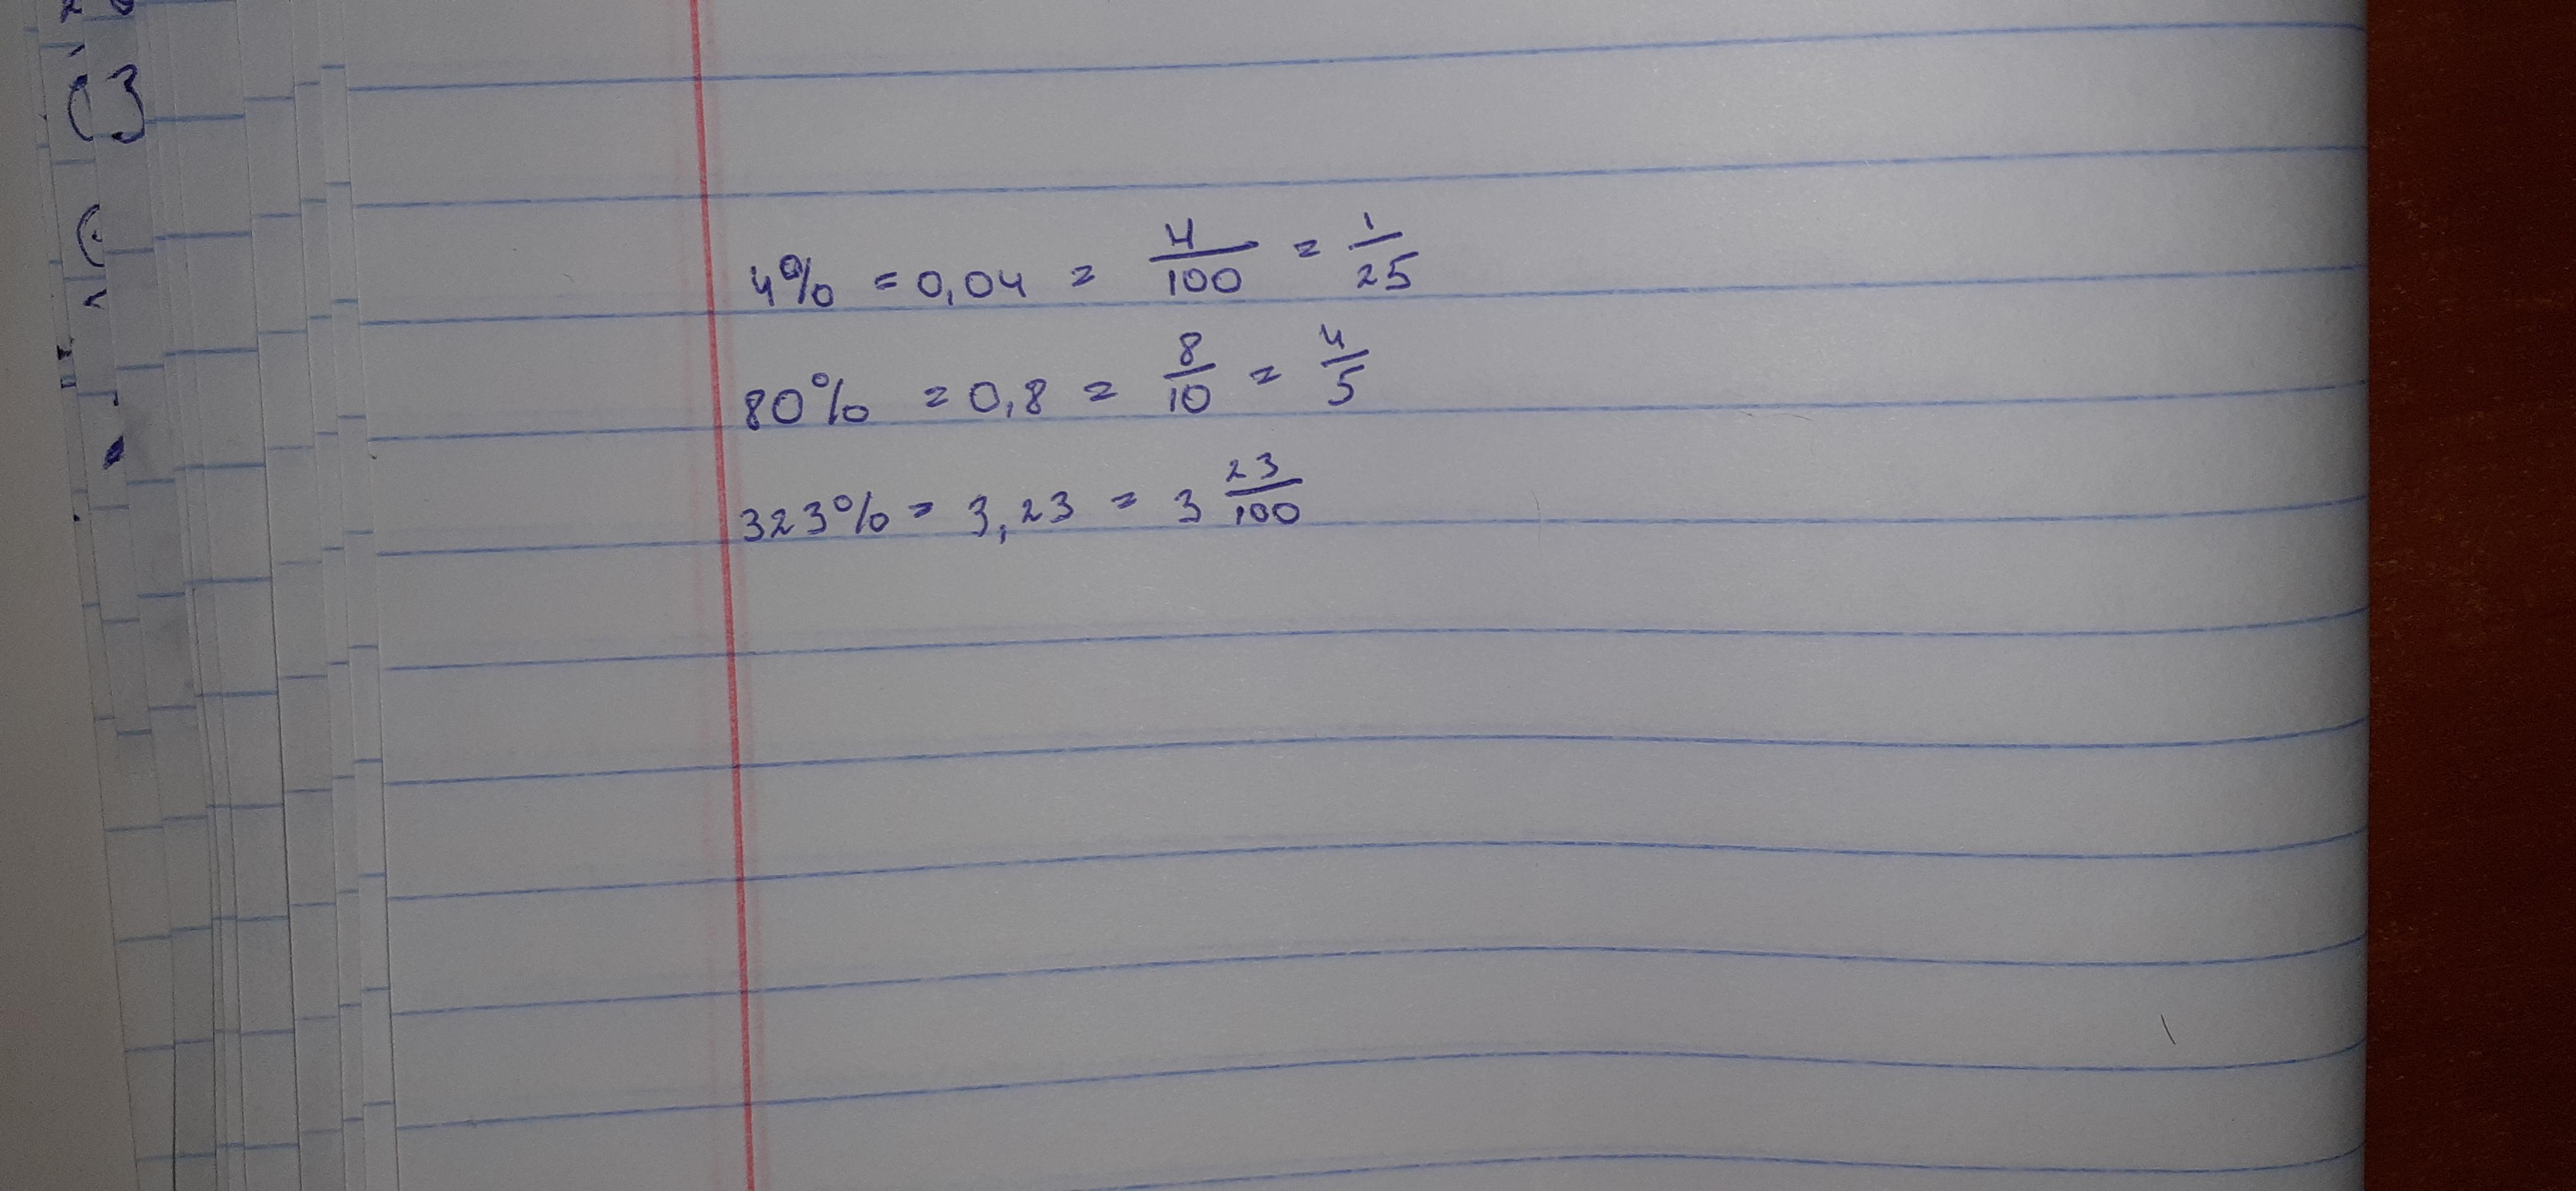 4% = 0,04 = 4/100 = 1/25
80% = 0,8 = 8/10 = 4/5
323% = 3,23 = 3 23/100